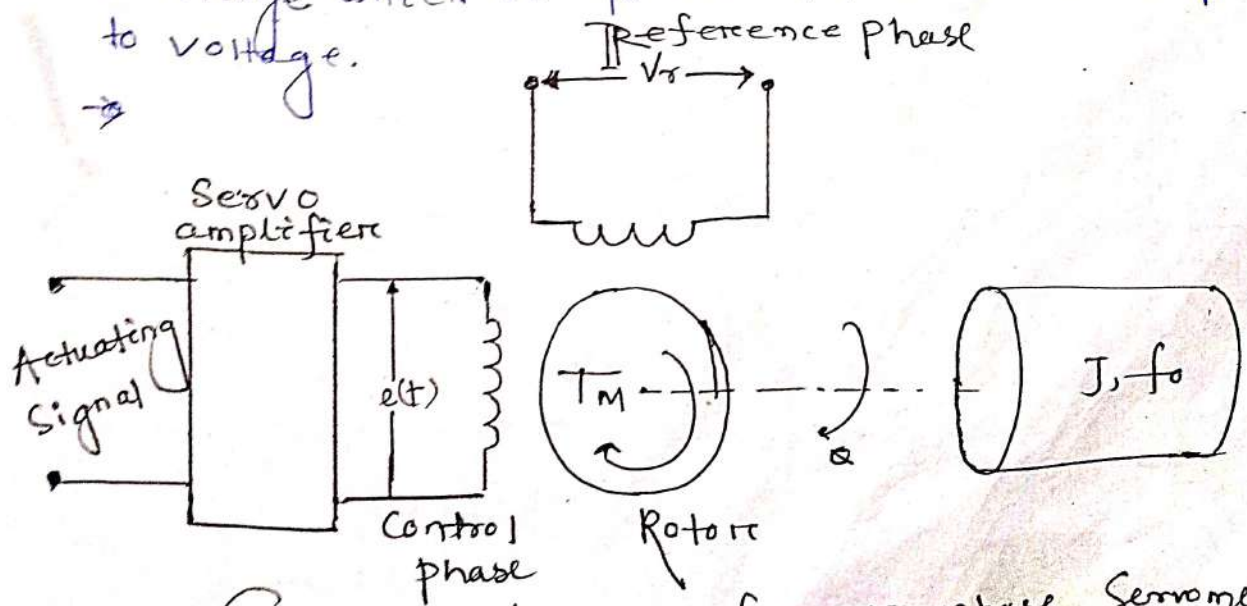 to voltage.
→
Reference phase
Vr
Servo
amplifier
Actuating
Signal
e(t)
TM
θ
J, fo
Control
phase
Rotor
phase Servome